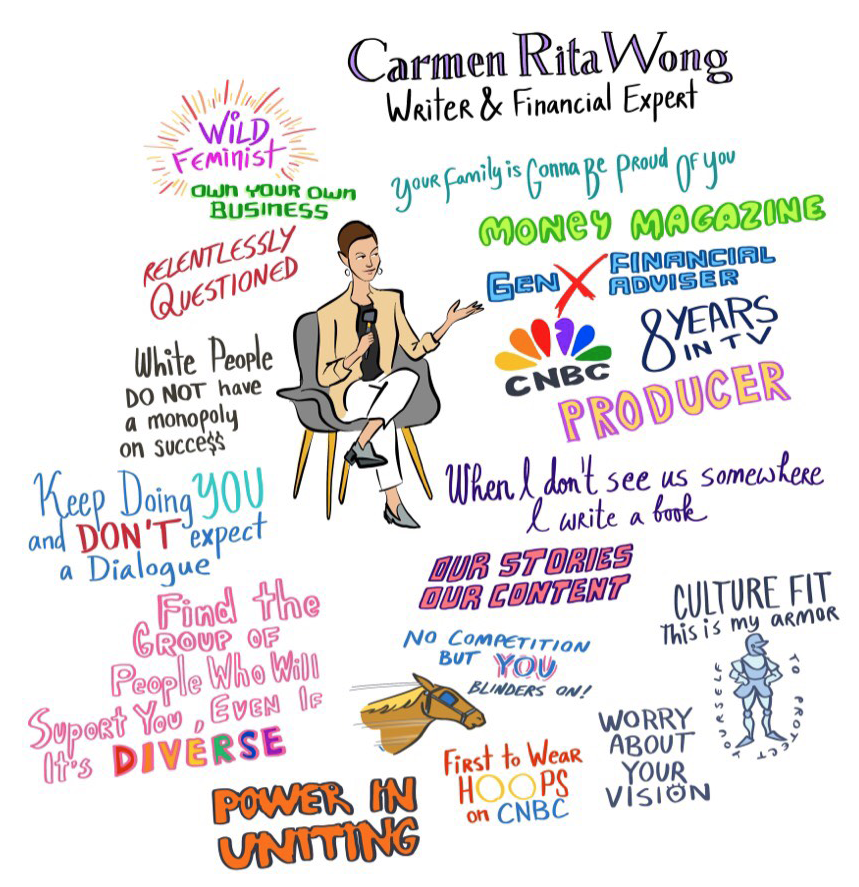 Carmen Rita Wong
Writer & Financial Expert
WiLD
FEMiNiST
OWN YOUR OWN
BUSINESS
Your Family is Gonna Be Proud Of You
MONEY MAGAZINE
GEN X FINANCIAL
ADVISER
RELENTLESSLY
QUESTIONED
8 YEARS
IN TV
CNBC
PRODUCER
White People
DO NOT have
a monopoly
on succe$$
Keep Doing YOU
and DON'T expect
a Dialogue
When I don't see us somewhere
I write a book
OUR STORIES
OUR CONTENT
Find the
GROUP OF
People Who Will
Suport You, EVEN IF
It's DIVERSE
NO COMPETITION
BUT YOU
BLINDERS ON!
CULTURE FIT
This is my ARMOR
TO PROTECT
YOURSELF
WORRY
ABOUT
YOUR
VISION
First to Wear
HOOPS
on CNBC
POWER IN
UNITING